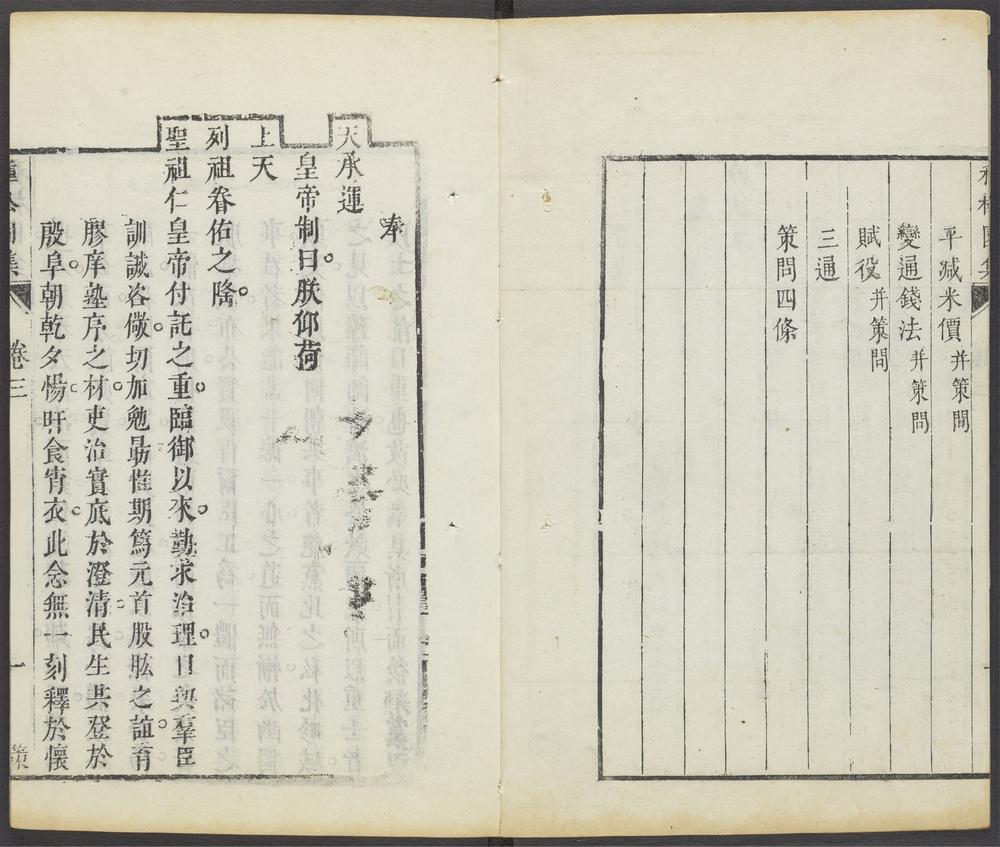 平減米價并策問
變通錢法并策問
賦役并策問
三通
策問四條
奉
天承運
皇帝制曰朕仰荷
上天
列祖眷佑之隆
聖祖仁皇帝付託之重臨御以來勤求治理日與羣臣
訓誡咨儆切加勉勗惟期篤元首股肱之誼育
膠庠塾序之材吏治實底於澄清民生共登於
殷阜朝乾夕惕旰食宵衣此念無一刻釋於懷
卷三
一
策